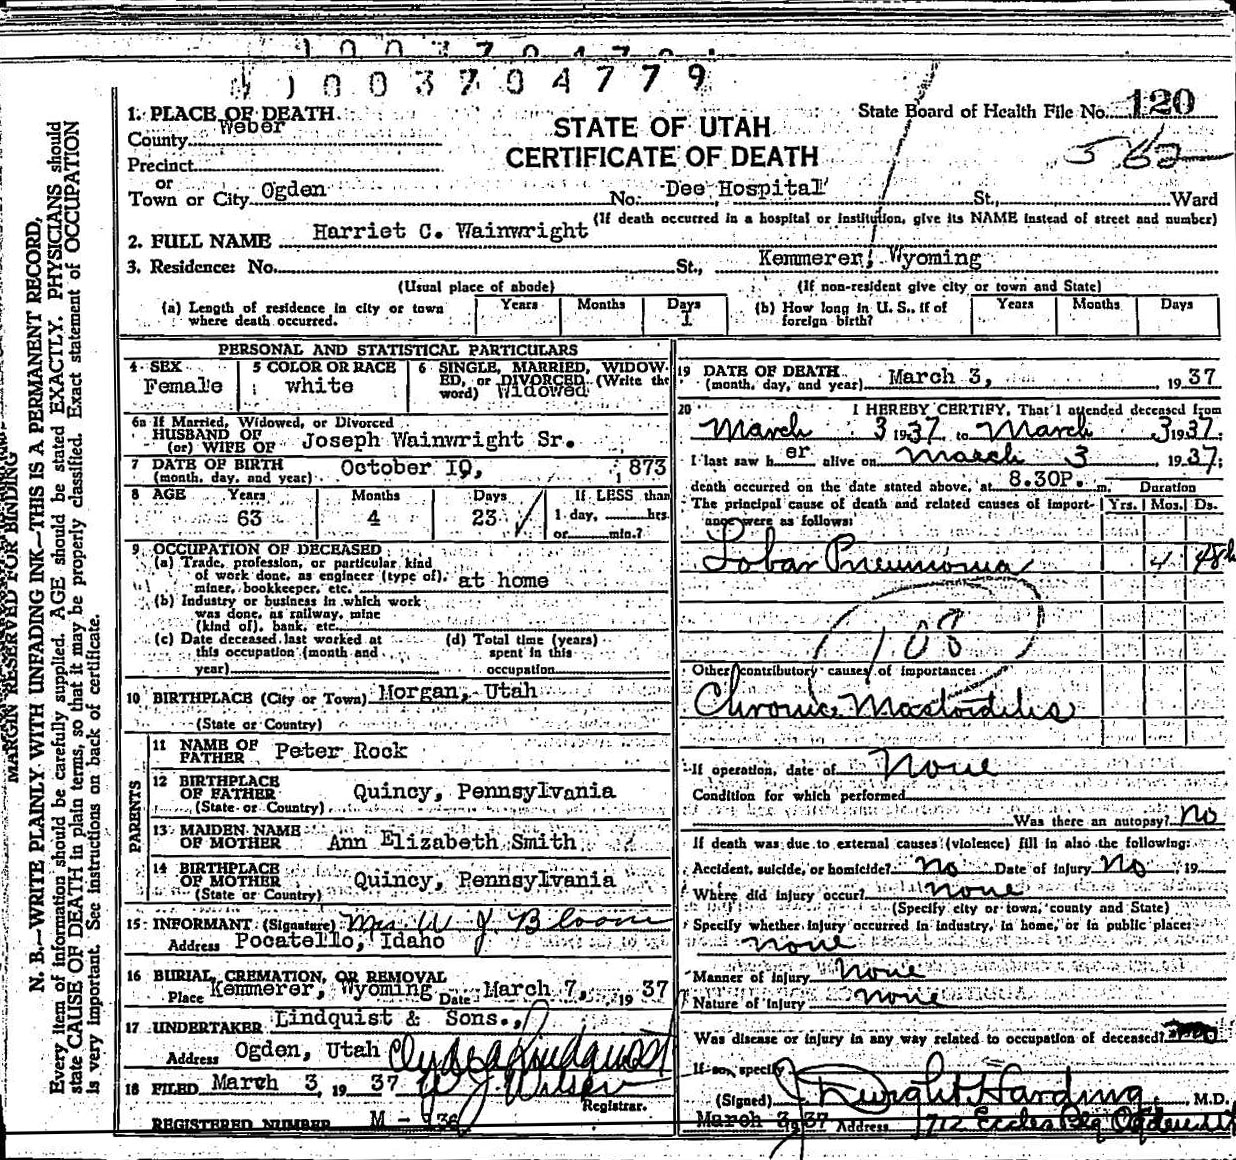 1003704779
1. PLACE OF DEATH
County Weber
Precinct
or
Town or City Ogden No. Dee Hospital St., Ward
(If death occurred in a hospital or institution, give its NAME instead of street and number)
STATE OF UTAH
CERTIFICATE OF DEATH
State Board of Health File No. 120
562
2. FULL NAME Harriet C. Wainwright
3. Residence: No. St., Kemmerer, Wyoming
(Usual place of abode) (If non-resident give city or town and State)
(a) Length of residence in city or town where death occurred. Years Months Days 1
(b) How long in U. S., if of foreign birth? Years Months Days
PERSONAL AND STATISTICAL PARTICULARS
4 SEX Female
5 COLOR OR RACE white
6 SINGLE, MARRIED, WIDOWED, or DIVORCED (Write the word) Widowed
6a If Married, Widowed, or Divorced
HUSBAND OF
(or) WIFE OF Joseph Wainwright Sr.
7 DATE OF BIRTH
(month, day, and year) October 10, 1873
8 AGE Years Months Days If LESS than
63 4 23 1 day, hrs.
or min.?
9 OCCUPATION OF DECEASED
(a) Trade, profession, or particular kind
of work done, as engineer (type of),
miner, bookkeeper, etc. at home
(b) Industry or business in which work
was done, as railway, mine
(kind of), bank, etc.
(c) Date deceased last worked at
this occupation (month and
year)
(d) Total time (years)
spent in this
occupation
10 BIRTHPLACE (City or Town) Morgan, Utah
(State or Country)
PARENTS
11 NAME OF
FATHER Peter Rock
12 BIRTHPLACE
OF FATHER Quincy, Pennsylvania
(State or Country)
13 MAIDEN NAME
OF MOTHER Ann Elizabeth Smith
14 BIRTHPLACE
OF MOTHER Quincy, Pennsylvania
(State or Country)
15 INFORMANT (Signature) Mrs W J Bloom
Address Pocatello, Idaho
16 BURIAL, CREMATION, OR REMOVAL
Place Kemmerer, Wyoming Date March 7, 19 37
17 UNDERTAKER Lindquist & Sons.,
Address Ogden, Utah Clyde A Lindquist
18 FILED March 3, 19 37 W J Wilson
Registrar.
REGISTERED NUMBER M - 136
19 DATE OF DEATH
(month, day, and year) March 3, 1937
20 I HEREBY CERTIFY, That I attended deceased from
March 3 1937 to March 3 1937;
I last saw her alive on March 3 1937;
death occurred on the date stated above, at 8.30P. m. Duration
The principal cause of death and related causes of importance were as follows: Yrs. Mos. Ds.
Lobar Pneumonia 48h
108
Other contributory causes of importance:
Chronic Mastoiditis
If operation, date of None
Condition for which performed
Was there an autopsy? No
If death was due to external causes (violence) fill in also the following:
Accident, suicide, or homicide? No Date of injury No, 19
Where did injury occur? none
(Specify city or town, county and State)
Specify whether injury occurred in industry, in home, or in public place:
none
Manner of injury none
Nature of injury none
Was disease or injury in any way related to occupation of deceased?
If so, specify
(Signed) J Dwight Harding, M.D.
March 3, 37 Address 1712 Eccles Blg Ogden Ut
MARGIN RESERVED FOR BINDING
N. B.—WRITE PLAINLY WITH UNFADING INK—THIS IS A PERMANENT RECORD,
Every item of information should be carefully supplied. AGE should be stated EXACTLY. PHYSICIANS should
state CAUSE OF DEATH in plain terms, so that it may be properly classified. Exact statement of OCCUPATION
is very important. See instructions on back of certificate.